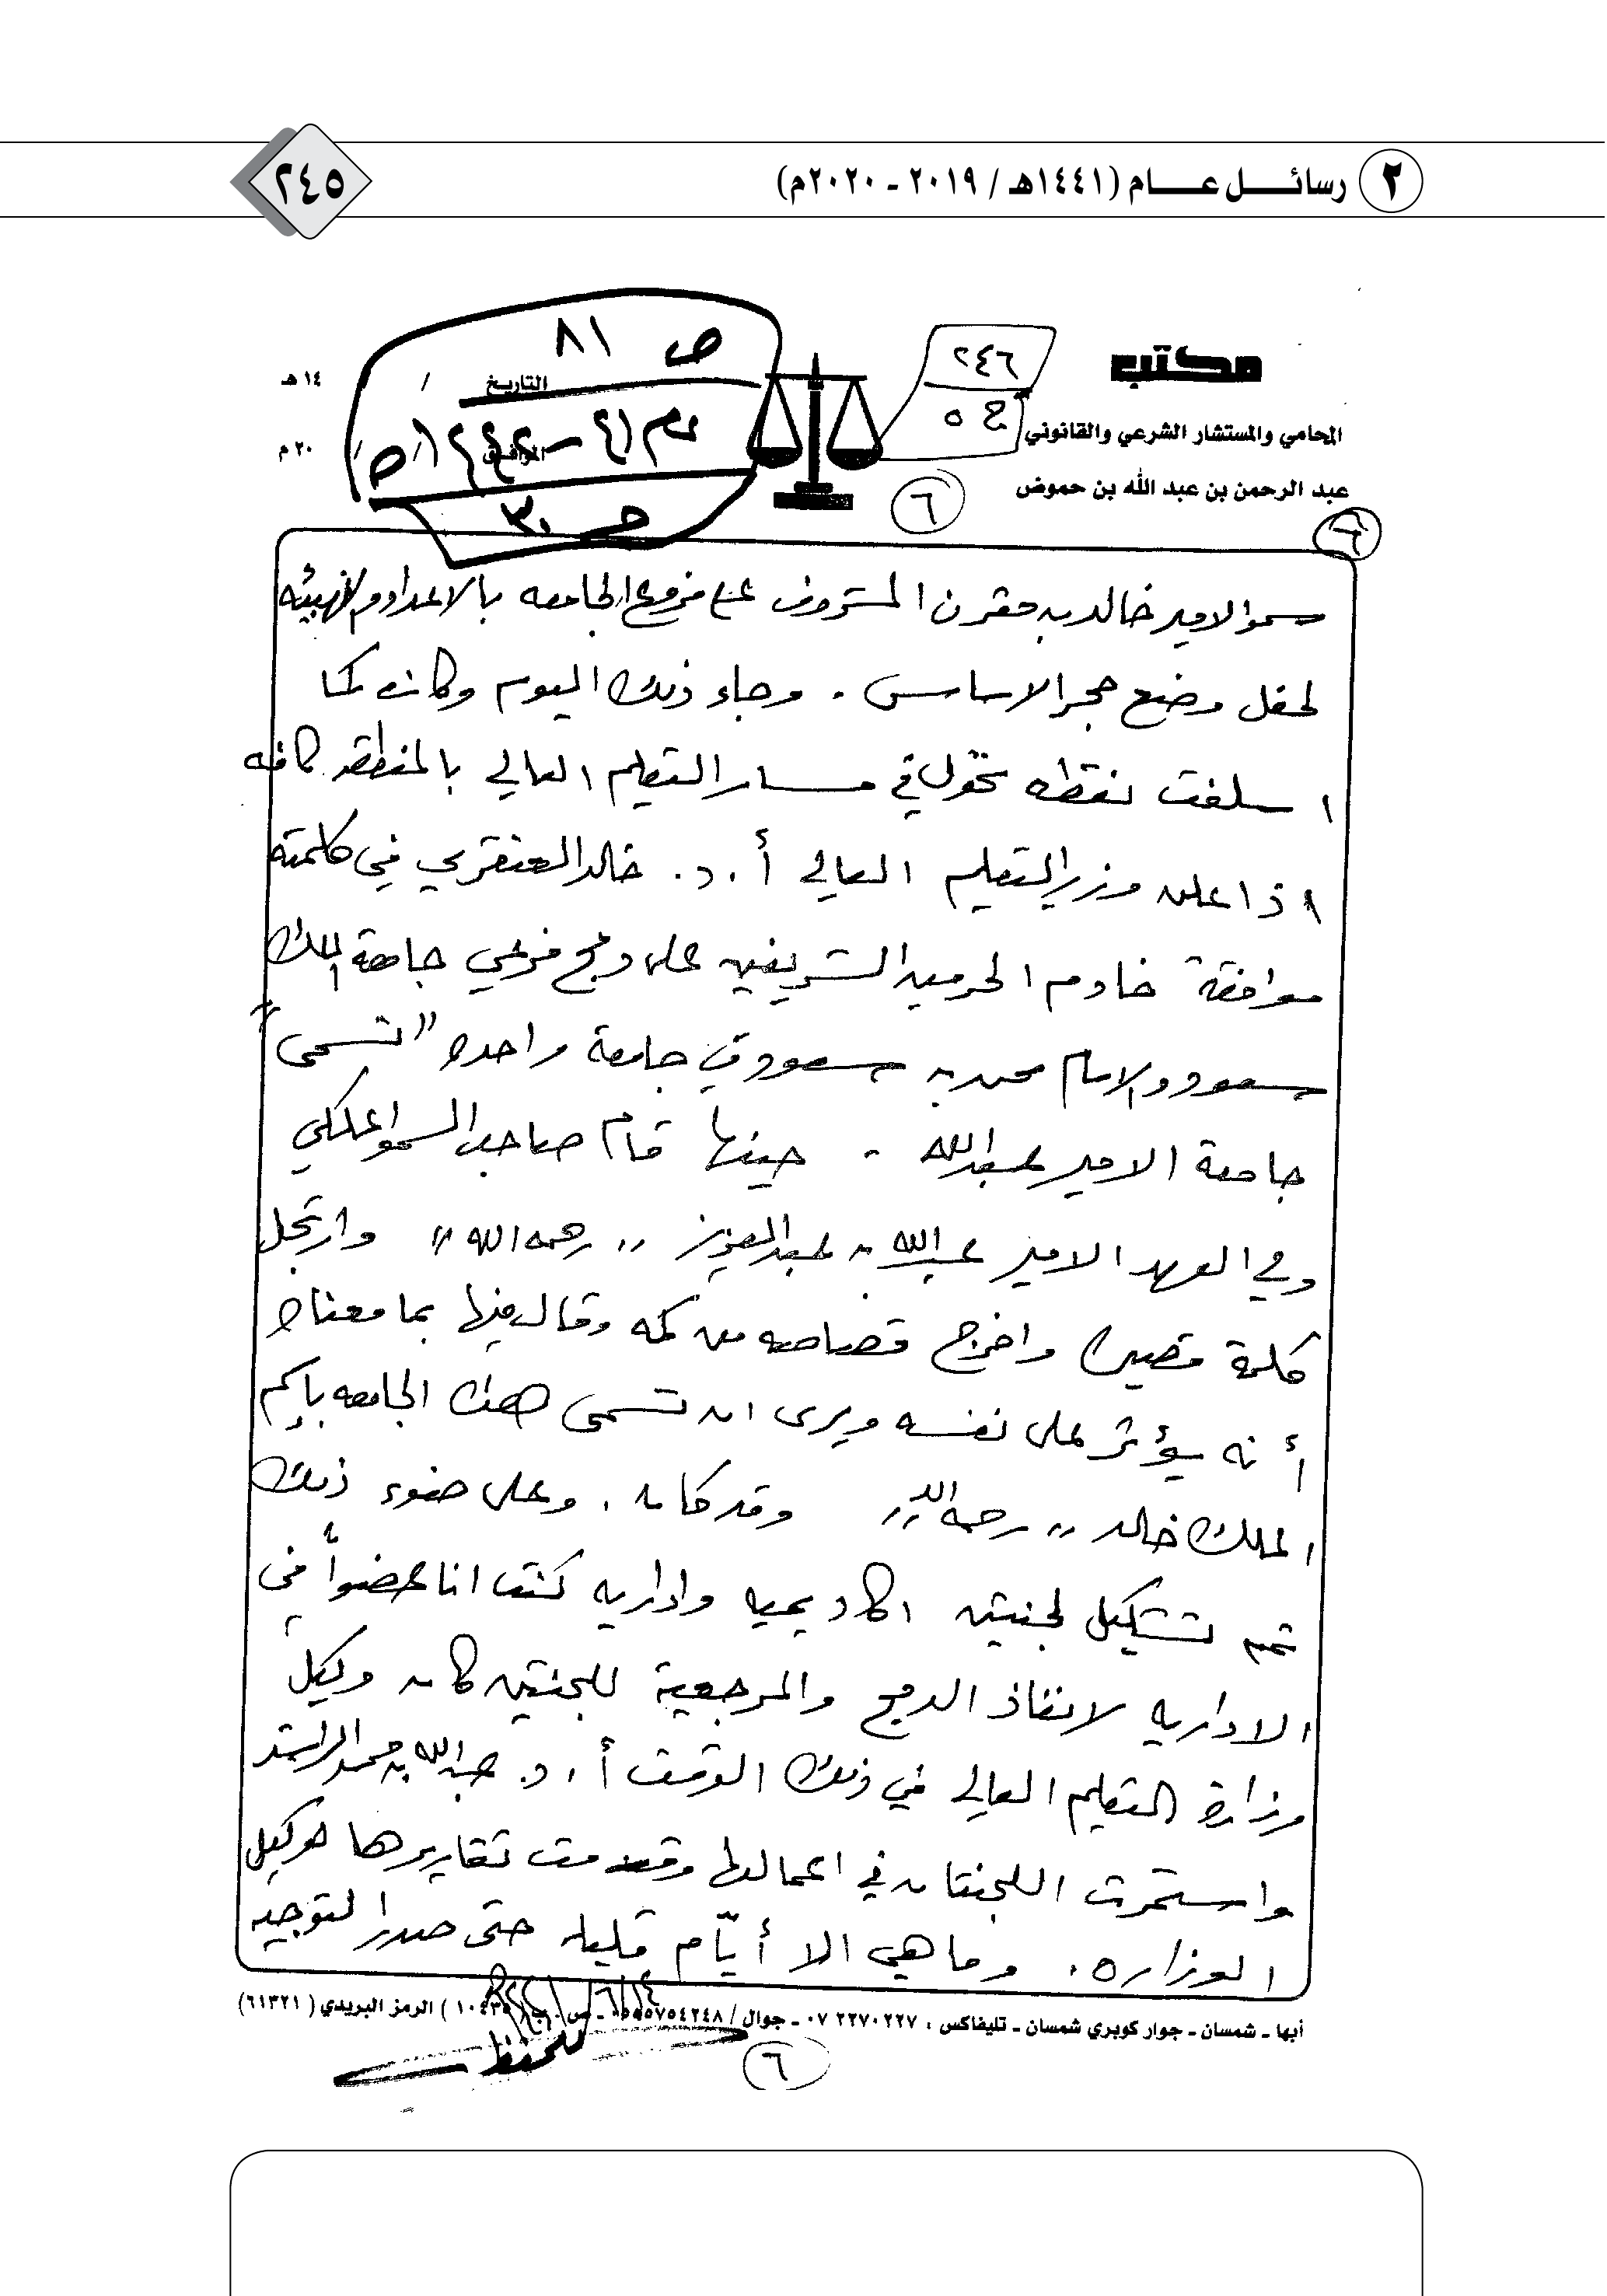 ٢ رسائل عام (١٤٤١هـ / ٢٠١٩ ـ ٢٠٢٠م)
٢٤٥
مكتب
المحامي والمستشار الشرعي والقانوني
عبد الرحمن بن عبد الله بن حموض
٢٤٦
ج ٥
٦
٦
ص ٨١
التاريخ / / ١٤هـ
عام ٤١ – ١٤٤٢هـ
الموافق / / ٢٠م
ج ٣٠
سمو الامير خالد بن مقرن المشرف على فروع الجامعه بالاعداد والتهيئه
لحفل وضع حجر الاساس . وجاء ذلك اليوم وكانت كما
اسلفت نقطه تحول في مسار التعليم العالي بالمنطقه كافه
اذ اعلن وزير التعليم العالي أ . د . خالد العنقري في كلمته
موافقة خادم الحرمين الشريفين على دمج فرعي جامعة الملك
سعود والامام محمد بن سعود في جامعة واحده "تسمى"
جامعة الامير عبدالله - حينها قام صاحب السمو الملكي
ولي العهد الامير عبدالله بن عبدالعزيز "رحمه الله" وارتجل
كلمة قصيره واخرج قصاصه من كمه وقال فيها بما معناه
أنه يؤثر على نفسه ويرى ان تسمى هذه الجامعه بإسم
الملك خالد "رحمه الله" وقد كان . وعلى ضوء ذلك
تم تشكيل لجنتين اكاديميه واداريه كنت انا عضواً في
الاداريه لانفاذ الدمج والمرجعية للجنتين كان وكيل
وزارة التعليم العالي في ذلك الوقت أ . د . عبدالله بن محمد الراشد
واستمرت اللجنتان في اعمالها وقدمت تقاريرها لوكيل
الوزاره . وما هي الا أيّام قليله حتى صدر التوجيه
أبها ـ شمسان ـ جوار كوبري شمسان ـ تليفاكس : ٢٢٧٠٢٢٧ ٠٧ ـ جوال / ٠٥٥٥٧٥٤٢٤٨ ـ ص . ب ( ١٠٤٣٥ ) الرمز البريدي ( ٦١٣٢١)
للحفظ
٦